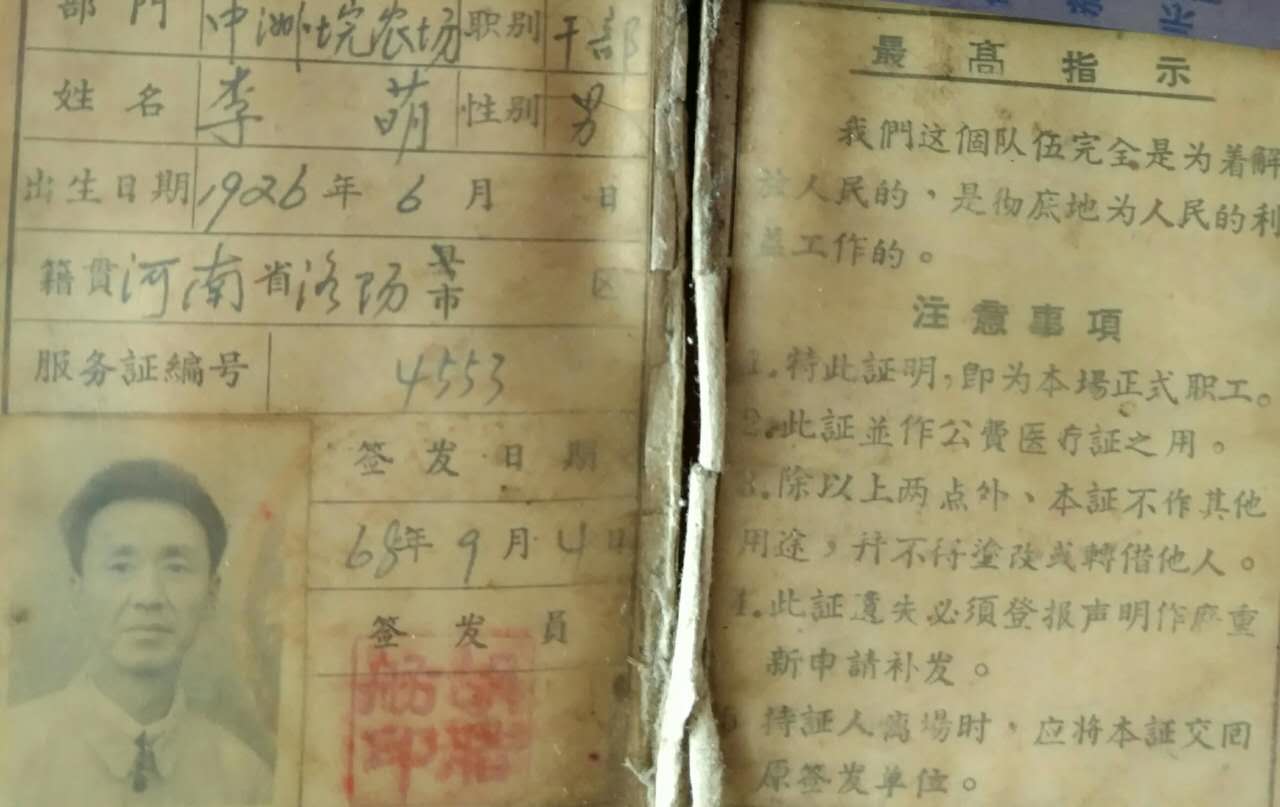 部門 沖洲垸农场 职别 干部
姓名 李萌 性别 男
出生日期 1926年6月 日
籍貫 河南省洛阳市 区
服务証編号 4553
签发日期
68年9月4日
签发员
最高指示
我們这個队伍完全是为着解
放人民的，是彻底地为人民的利
益工作的。
注意事項
1.持此証明，即为本場正式职工。
2.此証並作公費医疗証之用。
3.除以上两点外、本証不作其他
用途，幷不得塗改或轉借他人。
4.此証遺失必須登报声明作废重
新申請补发。
5 持証人离場时，应将本証交回
原签发单位。